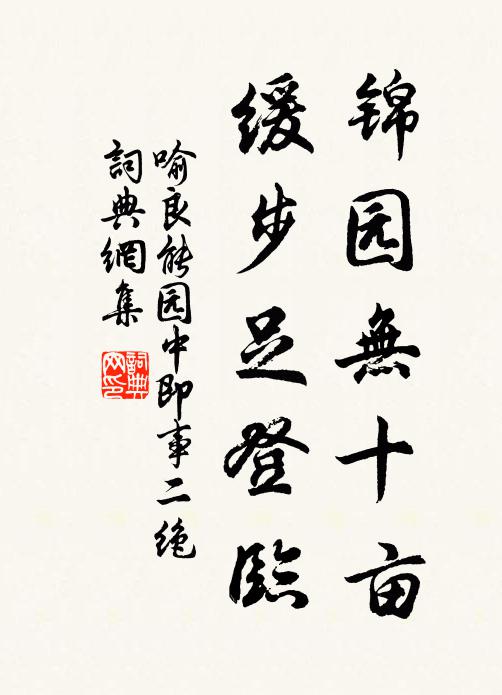 锦园無十亩
缓步足登臨
喻良能园中即事二绝
詞典網集
詞典网印